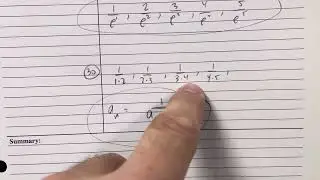 1/e¹, 2/e², 3/e³, 4/e⁴, 5/e⁵
32 1/1·2, 1/2·3, 1/3·4, 1/4·5,
aₙ = 1/n
Summary: